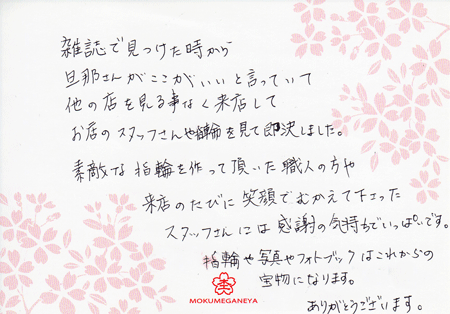 雑誌で見つけた時から
旦那さんがここがいいと言っていて
他の店を見る事なく来店して
お店のスタッフさんや指輪を見て即決しました。
素敵な指輪を作って頂いた職人の方や
来店のたびに笑顔でむかえて下さった
スタッフさんには感謝の気持ちでいっぱいです。
指輪や写真やフォトブックはこれからの
宝物になります。
MOKUMEGANEYA
ありがとうございます。